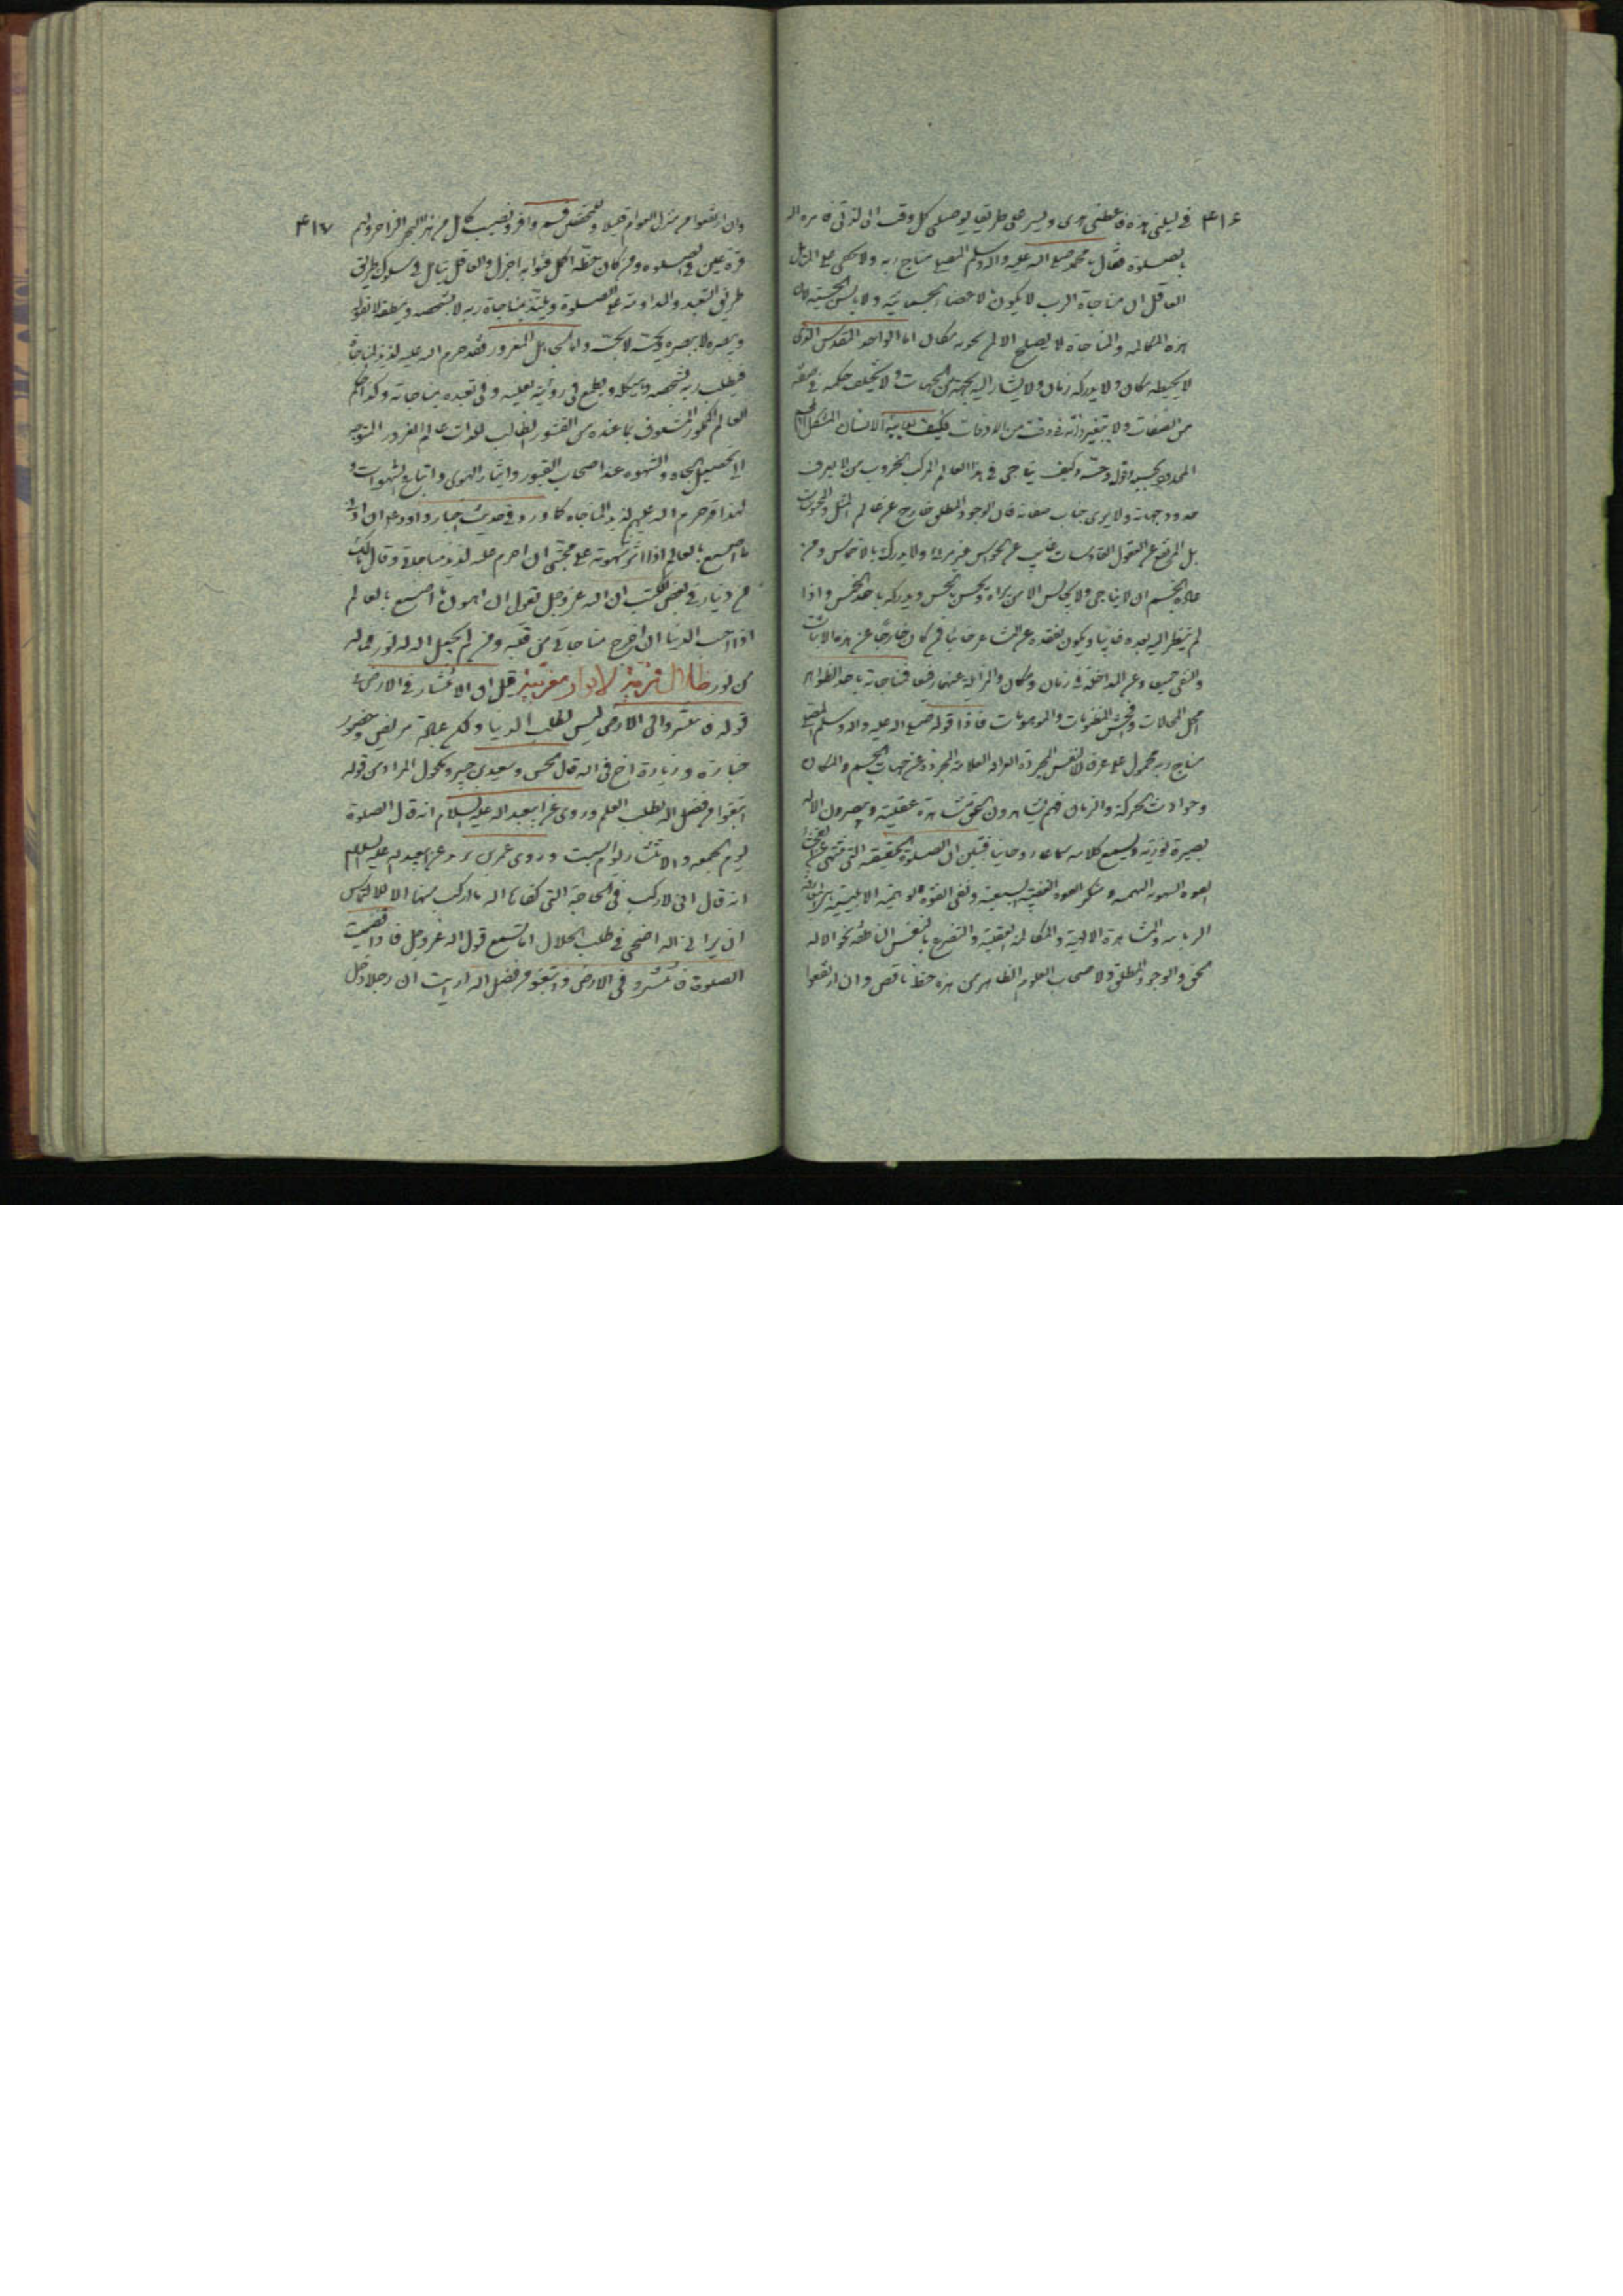 ۴۱۶
في ليلتي هذه فاعطني هدى ويسر لي طريقا يوصلني كل وقت الى لذتي فامره الله
بالصلوة فقال يا محمد صلى الله عليه واله وسلم المصلي مناج ربه ولا يخفى على
العاقل ان مناجاة الرب لا يكون بالاعضاء الجسمانية ولا بالسن الحسية لان
هذه المكالمة والمناجاة لا يصلح الا لم يحويه مكان اما الواحد المقدس الذي
لا يحيطه مكان ولا يدركه زمان ولا يشار اليه بجهة من الجهات ولا يختلف حكمه في صفة
من الصفات ولا يتغير ذاته في وقت من الاوقات فكيف يعاينه الانسان المشكل
المحدود بجسمه وقوله وحسه وكيف يناجي في هذا العالم المركب من لا يعرف
حدود جهاته ولا يرى جناب صفاته فان الوجود المطلق خارج عن عالم المثل
بل المرتفع عن العقول غايب عن الحواس غير مرئي ولا يدركه بالالتماس ومن
عادة الجسم ان لا يناجي ولا يجالس الا من يراه ويحس بالحس ويدركه باحد الخمس واذا
لم ينظر اليه يعده غايبا ويكون بفقده عن المشاعر خائبا فمن كان خارجا عن هذه
والنفي جميعا وعن المداخلة في زمان ومكان والمزايلة عنهما رفيعا فمناجاته باحد الظواهر
محل المحالات وافحش المظنونات والموهومات فاذا قوله صلى الله عليه واله وسلم المصلي
مناج ربه محمول على عرفان النفس المجردة العلامة المجردة عن جهات الجسم والمكان
وحوادث الحركة والزمان فهم يشاهدون الحق مشاهدة عقلية ويبصرون الاله
بصيرة نورية ويسمع كلامه سماعا روحانيا فتبين ان الصلوة الحقيقة التي تنتهي عن
القوة الشهوية البهيمية ومنكر القوة الغضبية السبعية وبغي القوة الوهمية الابليسية
الربانية والمشاهدة الالهية والمكالمة العقلية والتضرع بالنفس الناطقة نحو الاله
الحق والوجود المطلق ولاصحاب العلوم الظاهر من هذه حظ ناقص وان ارتفعوا
۴۱۷
وان ارتفعوا من منزل العوام قليلا وللمحققين قسم وافر ونصيب كامل من هذا البحر الزاخر ولهم
قرة عين في الصلوة ومن كان حظه اكمل فثوابه اجزل والعاقل يتأمل في سلوك طريق
طريق التعبد والمداومة على الصلوة ويلتذ بمناجاة ربه لا بشخصه وينطقه لا بقوله
ويبصره لا ببصره ويحسه لا بحسه واما الجاهل المغرور فقد حرم الله عليه لذيذ المناجاة
فيطلب ربه بشخصه وهيكله ويطمع في رؤيته بعينيه وفي تعبده بمناجاته وكذا حكم
العالم المشعوف بما عنده من القشور الطالب للذات عالم الغرور المتوجه
الى تحصيل الجاه والشهوة عند اصحاب القبور وايثار الهوى واتباع الشهوات و
لهذا قد حرم الله عليهم لذيذ المناجاة كما ورد في حديث اخبار داود ان ادنى
ما اصنع بالعالم اذا اثر شهوته على محبتي ان احرم عليه لذيذ مناجاتي وقال مالك
بن دينار في بعض الكتب ان الله عز وجل يقول ان اهون ما اصنع بالعالم
اذا احب الدنيا ان اخرج مناجاتي من قلبه ومن لم يجعل الله له نور فما له
من نور ظلال فرشية لانوار قيل ان الانتشار في الارض
قوله فانتشروا في الارض ليس لطلب الدنيا ولكن عيادة مريض وحضور
جنازة وزيارة اخ في الله قال الحسن وسعيد بن جبير ومكحول المراد من قوله
ابتغوا من فضل الله طلب العلم وروى عن ابيعبد الله عليه السلام انه قال الصلوة
يوم الجمعة والانتشار يوم السبت وروى عمر بن يزيد عن ابيعبد الله عليه السلام
انه قال اني لاركب في الحاجة التي كفاها الله ما اركب فيها الا لالتماس
ان يراني الله اضحى في طلب الحلال اما تسمع قول الله عز وجل فاذا قضيت
الصلوة فانتشروا في الارض وابتغوا من فضل الله ارأيت ان رجلا دخل